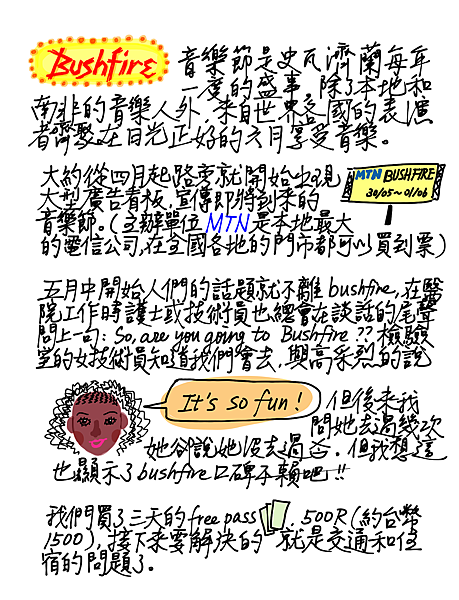 Bushfire 音樂節是史瓦濟蘭每年
一度的盛事,除了本地和
南非的音樂人外,來自世界各國的表演
者齊聚在日光正好的六月享受音樂。
大約從四月起路旁就開始出現
大型廣告看板,宣傳即將到來的
音樂節。(主辦單位MTN是本地最大
的電信公司,在全國各地的門市都可以買到票)
MTN BUSHFIRE
30/05~01/06
五月中開始人們的話題就不離bushfire,在醫
院工作時護士或技術員也總會在談話的尾聲
問上一句:So, are you going to Bushfire ?? 檢驗
室的女技術員知道我們會去,興高采烈的說
It's so fun!
但後來我
問她去過幾次
她卻說她沒去過否。但我想這
也顯示了bushfire口碑不賴吧!!
我們買了三天的free pass . 500R(約台幣
1500),接下來要解決的 就是交通和住
宿的問題了。